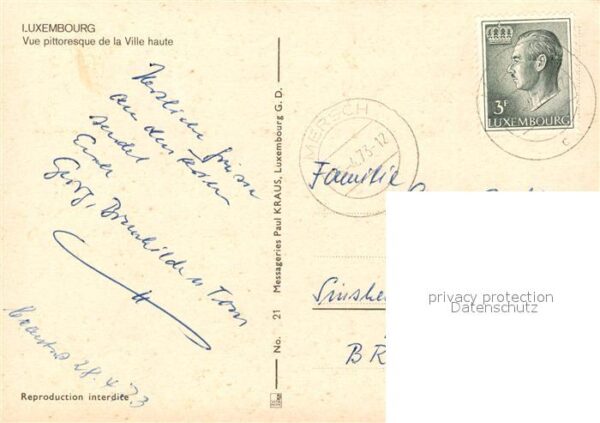 LUXEMBOURG
Vue pittoresque de la Ville haute
Herzliche Grüsse
aus den Ferien
sendet
Euch
Georg, Brunhilde u Tom
28.4.73
Reproduction interdite
No. 21 Messageries Paul KRAUS, Luxembourg G. D.
MERSCH
4.73-12
3F
LUXEMBOURG
c
Familie
Sinshe
BR
privacy protection
Datenschutz